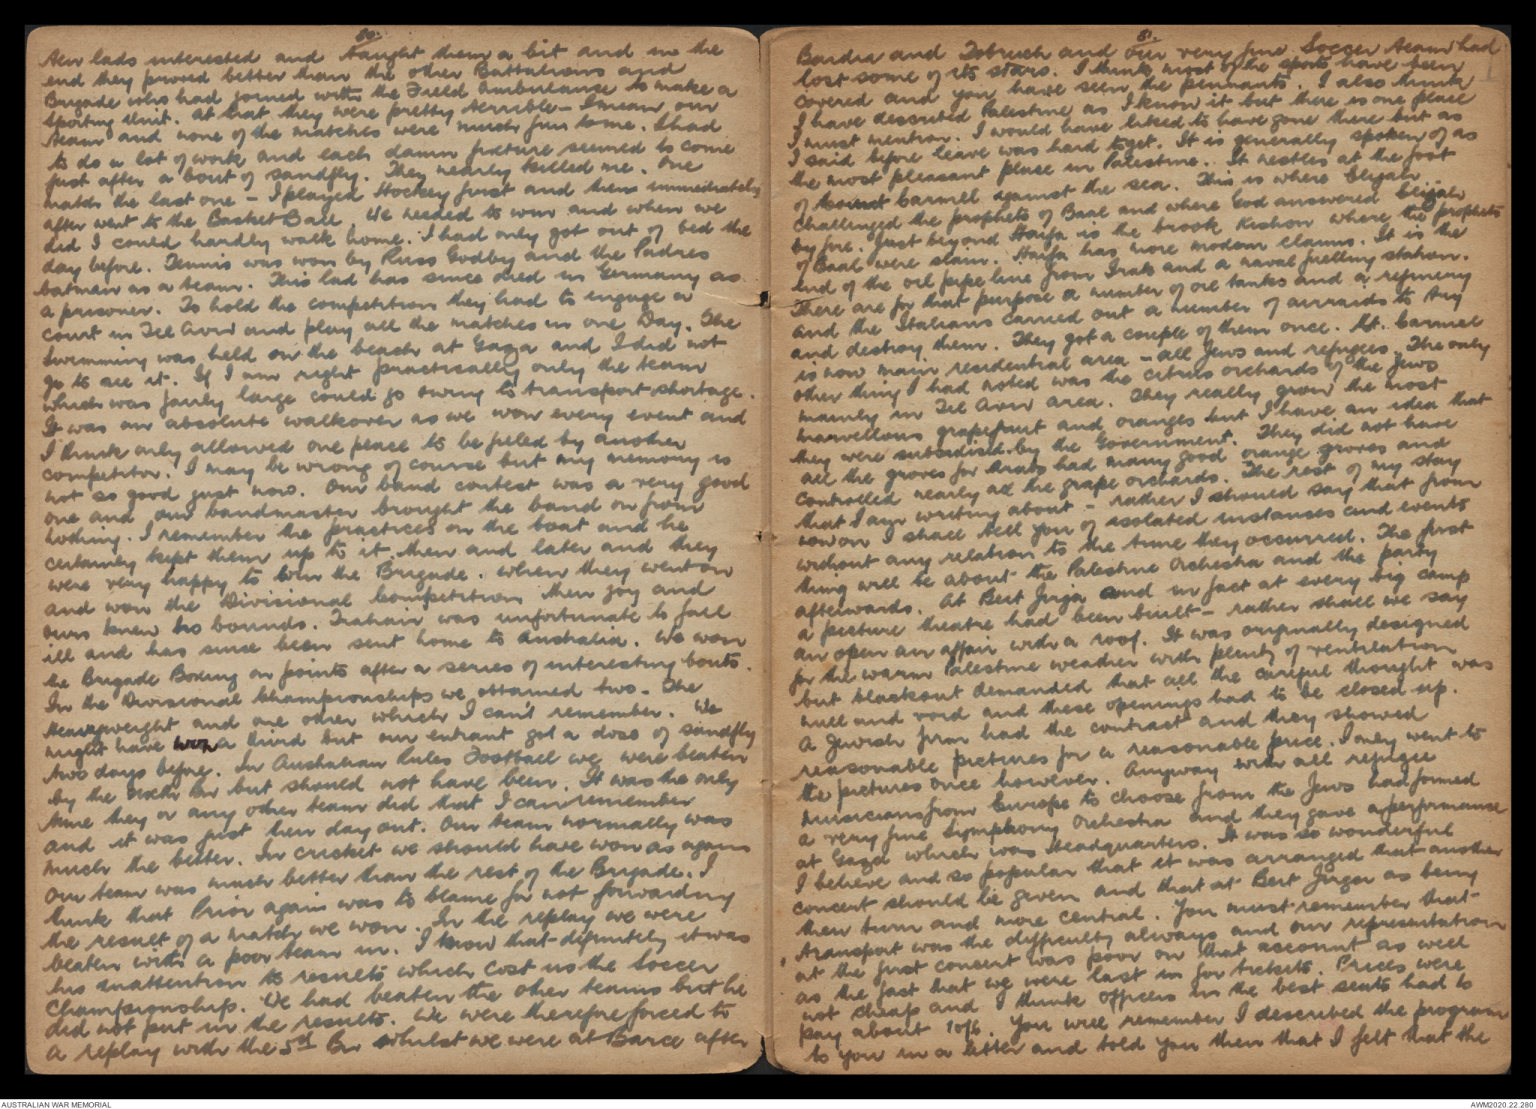 80.
new lads interested and taught them a bit and in the
end they proved better than the other Battalions and
Brigade who had joined with the Field Ambulance to make a
sporting Unit. At that they were pretty terrible – I mean our
team and none of the matches were much fun to me. I had
to do a lot of work and each damn fixture seemed to come
just after a bout of sandfly. They nearly killed me. One
match the last one – I played Hockey first and then immediately
after went to the Basket Ball. We needed to win and when we
did I could hardly walk home. I had only got out of bed the
day before. Tennis was won by Russ Godby and the Padres
batman as a team. This lad has since died in Germany as
a prisoner. To hold the competition they had to engage a
court in Tel Aviv and play all the matches in one Day. The
Swimming was held on the beach at Gaza and I did not
go to see it. If I am right practically only the team
which was fairly large could go owing to transport shortage.
It was an absolute walkover as we won every event and
I think only allowed one place to be filled by another
competitor. I may be wrong of course but my memory is
not so good just now. Our band contest was a very good
one and our bandmaster brought the band on from
nothing. I remember the practices on the boat and he
certainly kept them up to it then and later and they
were very happy to win the Brigade. When they went on
and won the Divisional Competition their joy and
ours knew no bounds. Trahair was unfortunate to fall
ill and has since been sent home to Australia. We won
the Brigade Boxing on points after a series of interesting bouts.
In the Divisional Championships we obtained two. The
Heavyweight and one other which I can't remember. We
might have won a third but our entrant got a dose of sandfly
two days before. In Australian Rules Football we were beaten
by the Sixth Bn but should not have been. It was the only
time they or any other team did that I can remember
and it was just their day out. Our team normally was
much the better. In cricket we should have won as again
our team was much better than the rest of the Brigade. I
think that Prior again was to blame for not forwarding
the result of a match we won. In the replay we were
beaten with a poor team in. I know that definitely it was
his inattention to results which cost us the Soccer
Championship. We had beaten the other teams but he
did not put in the results. We were therefore forced to
a replay with the 5th Bn whilst we were at Barce after
81.
Bardia and Tobruch and our very fine Soccer team had
lost some of its stars. I think most of the sports have been
covered and you have seen the pennants. I also think
I have described Palestine as I know it but there is one place
I must mention. I would have liked to have gone there but as
I said before leave was hard to get. It is generally spoken of as
the most pleasant place in Palestine. It nestles at the foot
of Mount Carmel against the sea. This is where Elijah
challenged the prophets of Baal and where God answered Elijah
by fire. Just beyond Haifa is the brook Kishon where the prophets
of Baal were slain. Haifa has more modern claims. It is the
end of the oil pipe line from Irak and a naval fuelling station.
There are for that purpose a number of oil tanks and a refinery
and the Italians carried out a number of airraids to try
and destroy them. They got a couple of them once. Mt. Carmel
is now main residential area – all Jews and refugees. The only
other thing I had noted was the citrus orchards of the Jews
mainly in Tel Aviv area. They really grow the most
marvellous grapefruit and oranges but I have an idea that
they were subsidised by the Government. They did not have
all the groves for Arabs had many good orange groves and
controlled nearly all the grape orchards. The rest of my stay
that I am writing about – rather I should say that from
now on I shall tell you of isolated instances and events
without any relation to the time they occurred. The first
thing will be about the Palestine Orchestra and the party
afterwards. At Beit Jirga and in fact at every big camp
a picture theatre had been built – rather shall we say
an open air affair with a roof. It was originally designed
for the warm Palestine weather with plenty of ventilation
but blackout demanded that all the careful thought was
null and void and these openings had to be closed up.
A Jewish firm had the contract and they showed
reasonable pictures for a reasonable price. I only went to
the pictures once however. Anyway with all refugee
musicians from Europe to choose from the Jews had formed
a very fine Symphony Orchestra and they gave a performance
at Gaza which was Headquarters. It was so wonderful
I believe and so popular that it was arranged that another
concert should be given and that at Beit Jirga as being
their turn and more central. You must remember that
transport was the difficulty always and our representation
at the first concert was poor on that account as well
as the fact that we were last in for tickets. Prices were
not cheap and I think officers in the best seats had to
pay about 10/6. You will remember I described the program
to you in a letter and told you then that I felt that the
AUSTRALIAN WAR MEMORIAL
AWM2020.22.280